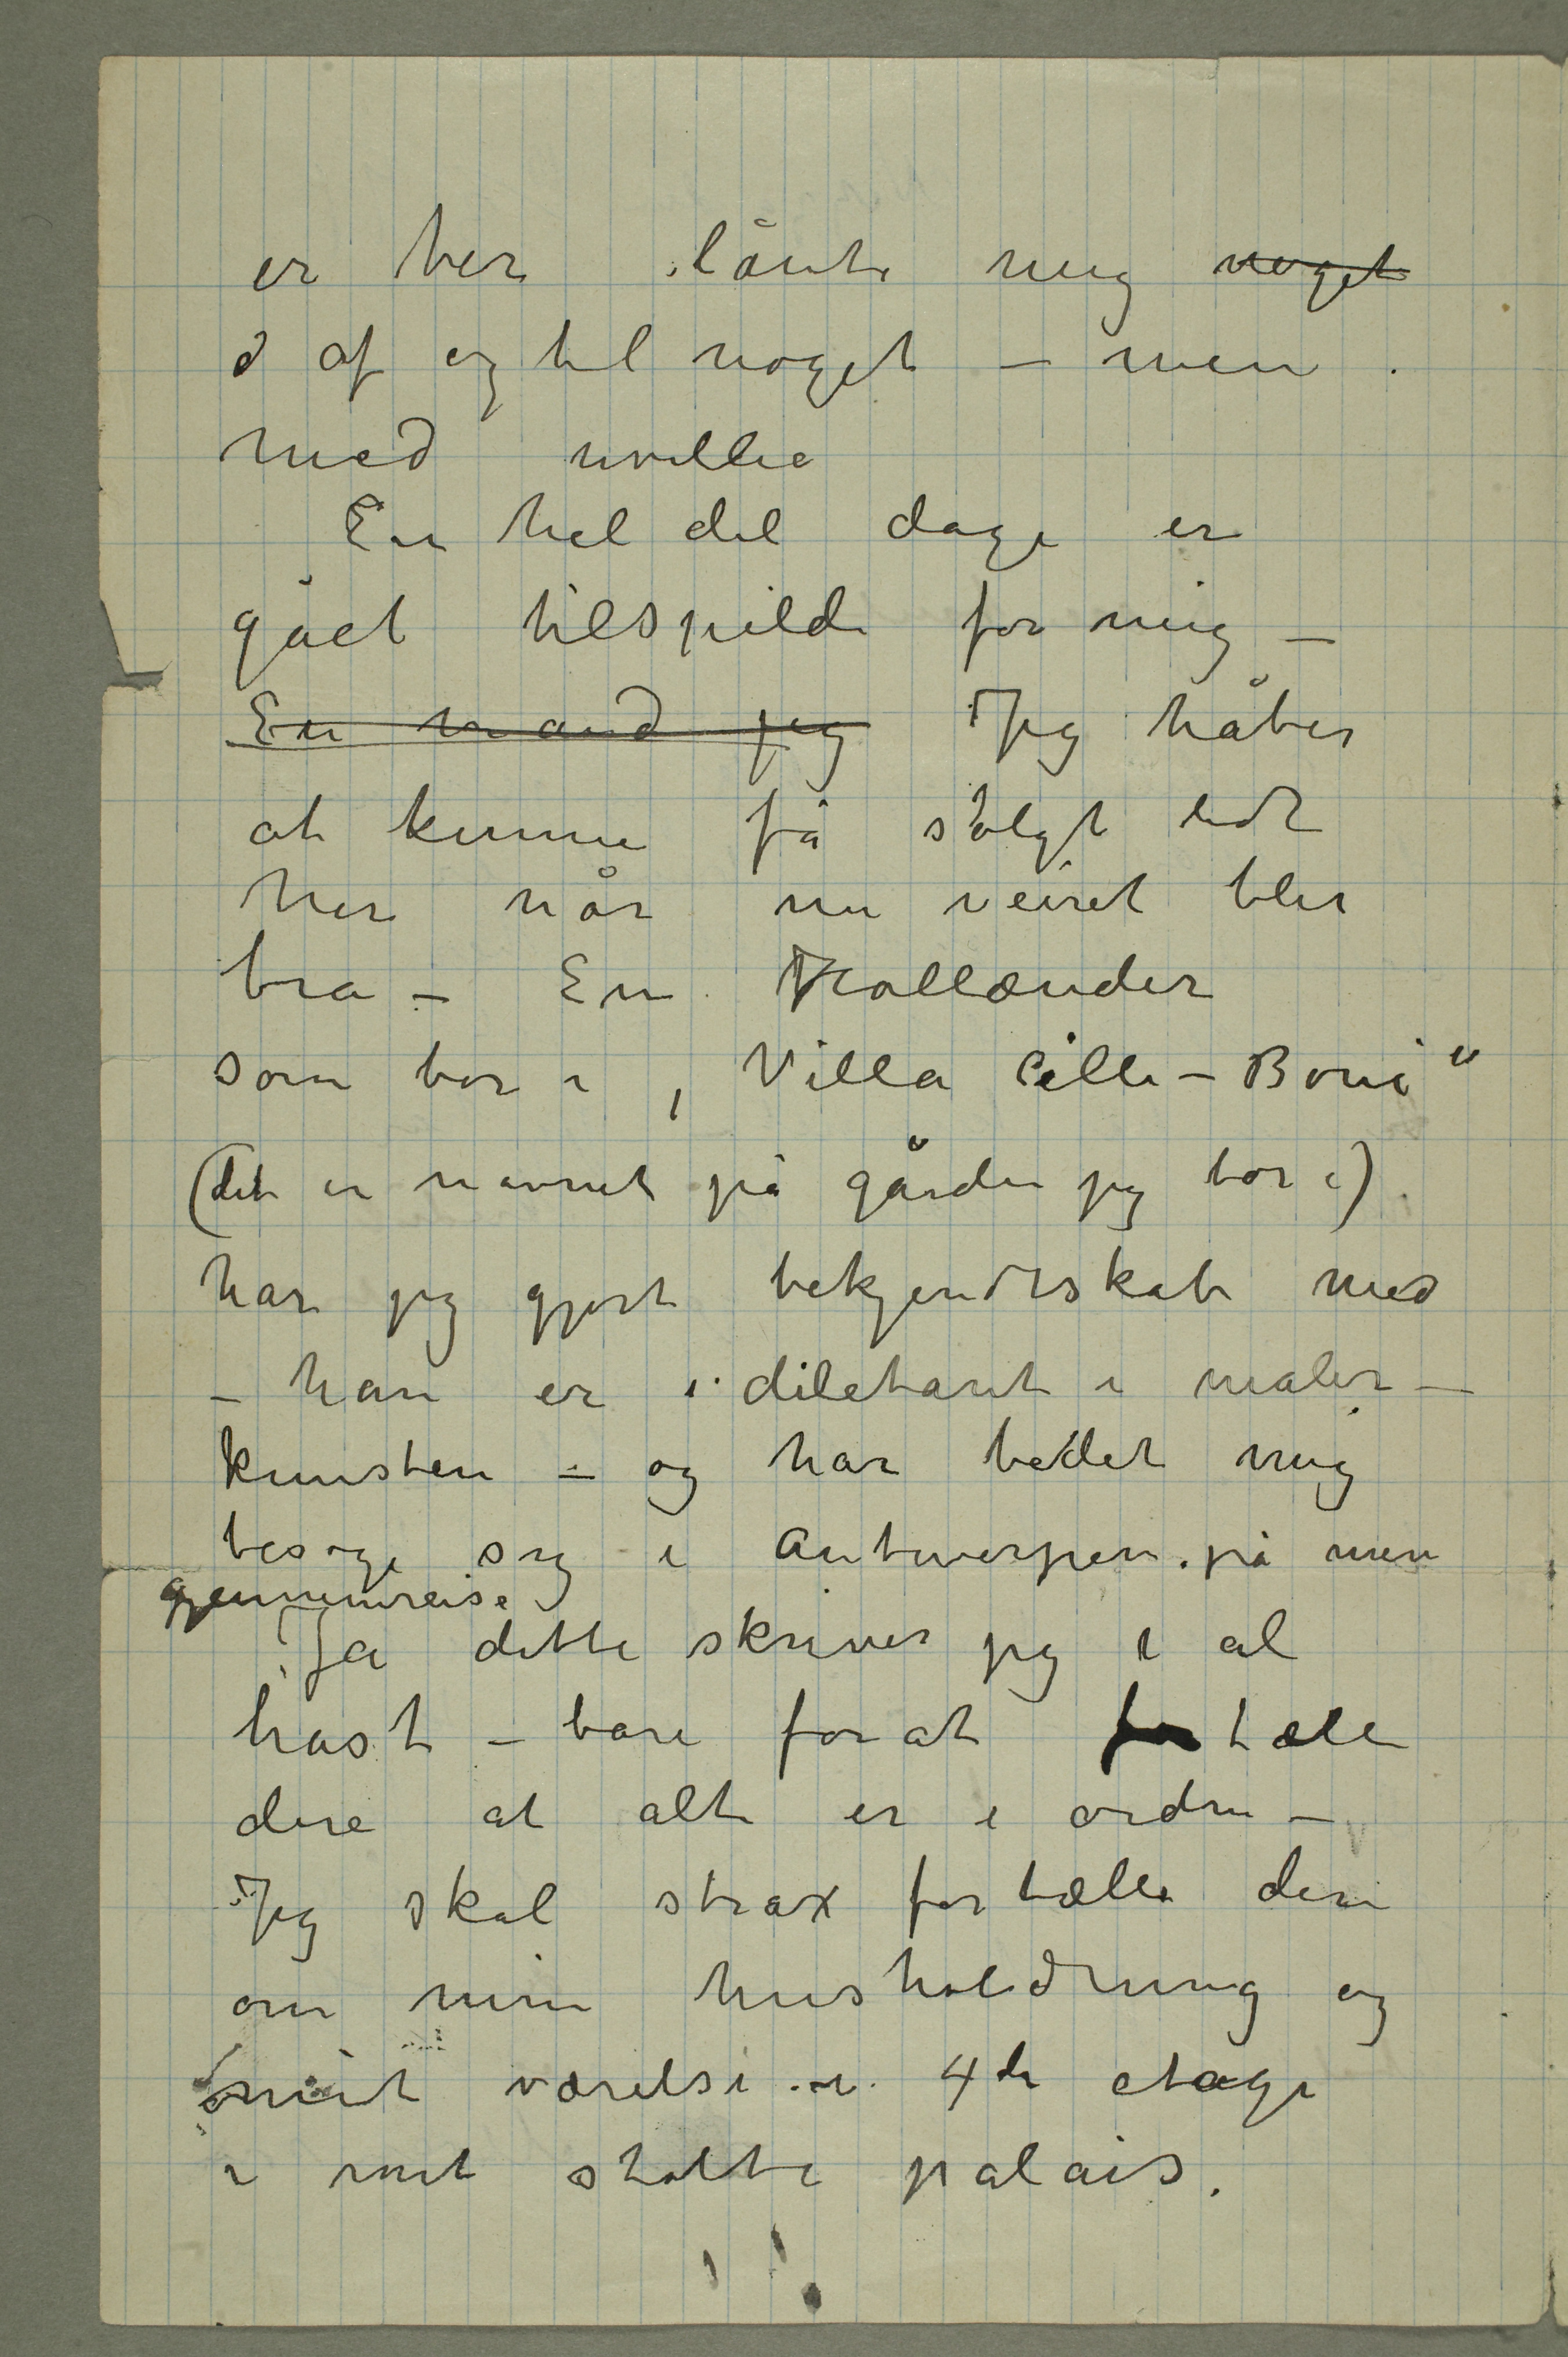 er her lånte mig noget
d af og til noget – men
med uvillie
En hel del dage er
gået tilspilde for mig –
En mand jeg Jeg håber
at kunne få solgt lidt
her når nu veiret blir
bra – En Hollænder
som bor i „Villa Pelle-Boni“
(det er navnet på gården jeg bor i)
har jeg gjort bekjendtskab med
– han er diletant i maler–
kunsten – og har bedet mig
besøge sig i Antwerpen på min
gjennemreise
Ja dette skriver jeg i al
hast – bare for at fortælle
dere at alt er i orden –
Jeg skal strax fortælle dere
om min husholdning og
mit værelse i 4de etage
i mit stolte palais.